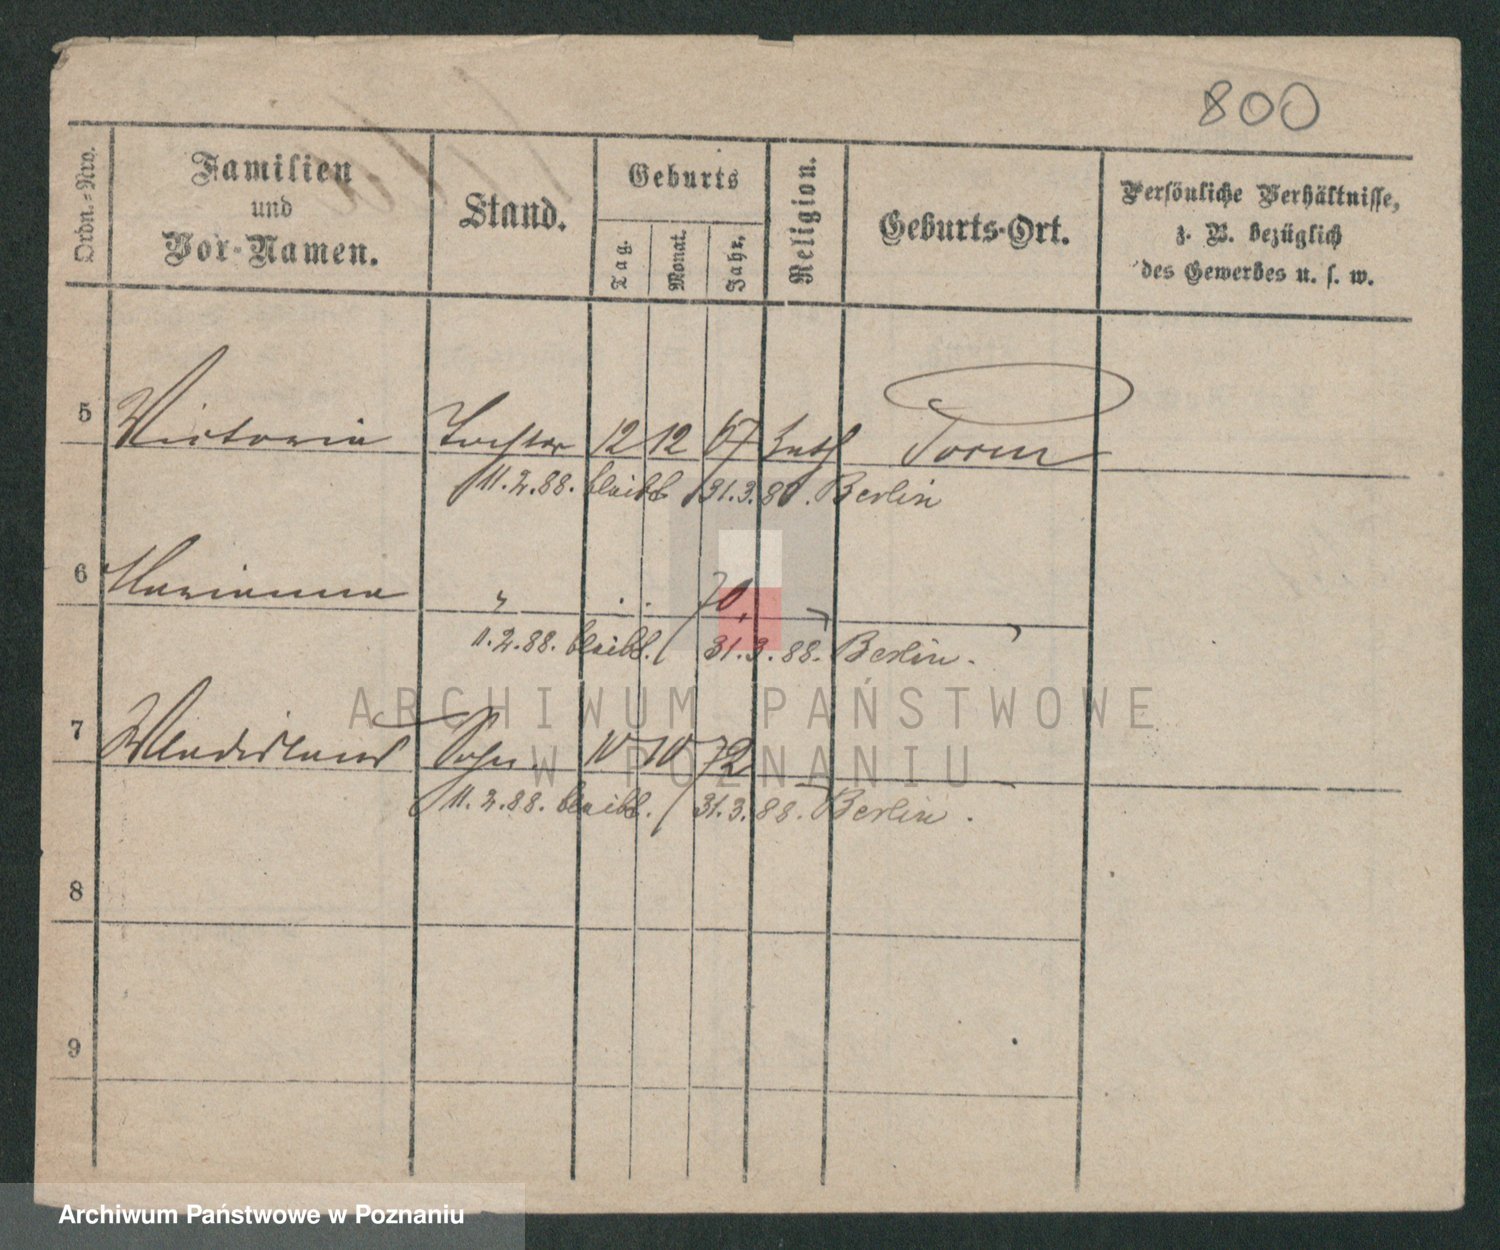 800
Ordn.-Nro.
Familien
und
Vor-Namen.
Stand.
Geburts
Tag.
Monat.
Jahr.
Religion.
Geburts-Ort.
Persönliche Verhältnisse,
z. B. bezüglich
des Gewerbes u. s. w.
5 Victoria Tochter 12 12 67 kath
11.2.88. bleibt 31.3.88. Berlin
6 Marianna " . . 70.
11.2.88. bleibt. / 31.3.88. Berlin.
7 Wladislaus Sohn. 10 10 72
11.2.88. bleibt. / 31.3.88. Berlin.
8
9
ARCHIWUM PAŃSTWOWE
W POZNANIU
Archiwum Państwowe w Poznaniu